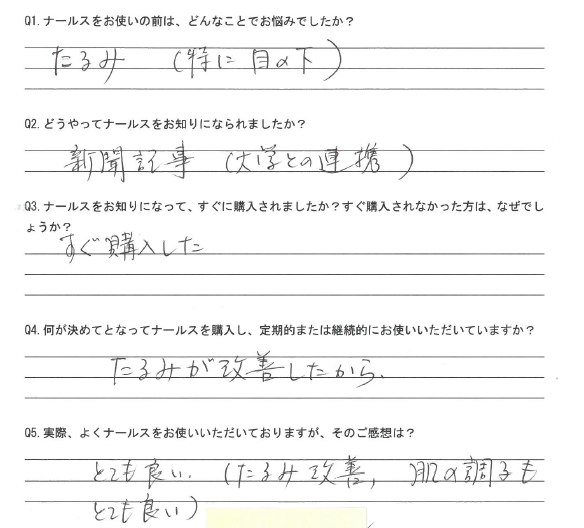 Q1. ナールスをお使いの前は、どんなことでお悩みでしたか？
たるみ （特に目の下）
Q2. どうやってナールスをお知りになられましたか？
新聞記事 （大学との連携）
Q3. ナールスをお知りになって、すぐに購入されましたか？すぐ購入されなかった方は、なぜでし
ょうか？
すぐ購入した
Q4. 何が決めてとなってナールスを購入し、定期的または継続的にお使いいただいていますか？
たるみが改善したから.
Q5. 実際、よくナールスをお使いいただいておりますが、そのご感想は？
とても良い. （たるみ改善, 肌の調子も
とても良い）